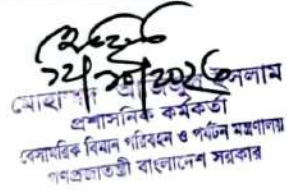 ১২/১০/২০২৫
মোহাম্মদ ইসলাম
প্রশাসনিক কর্মকর্তা
বেসামরিক বিমান পরিবহন ও পর্যটন মন্ত্রণালয়
গণপ্রজাতন্ত্রী বাংলাদেশ সরকার